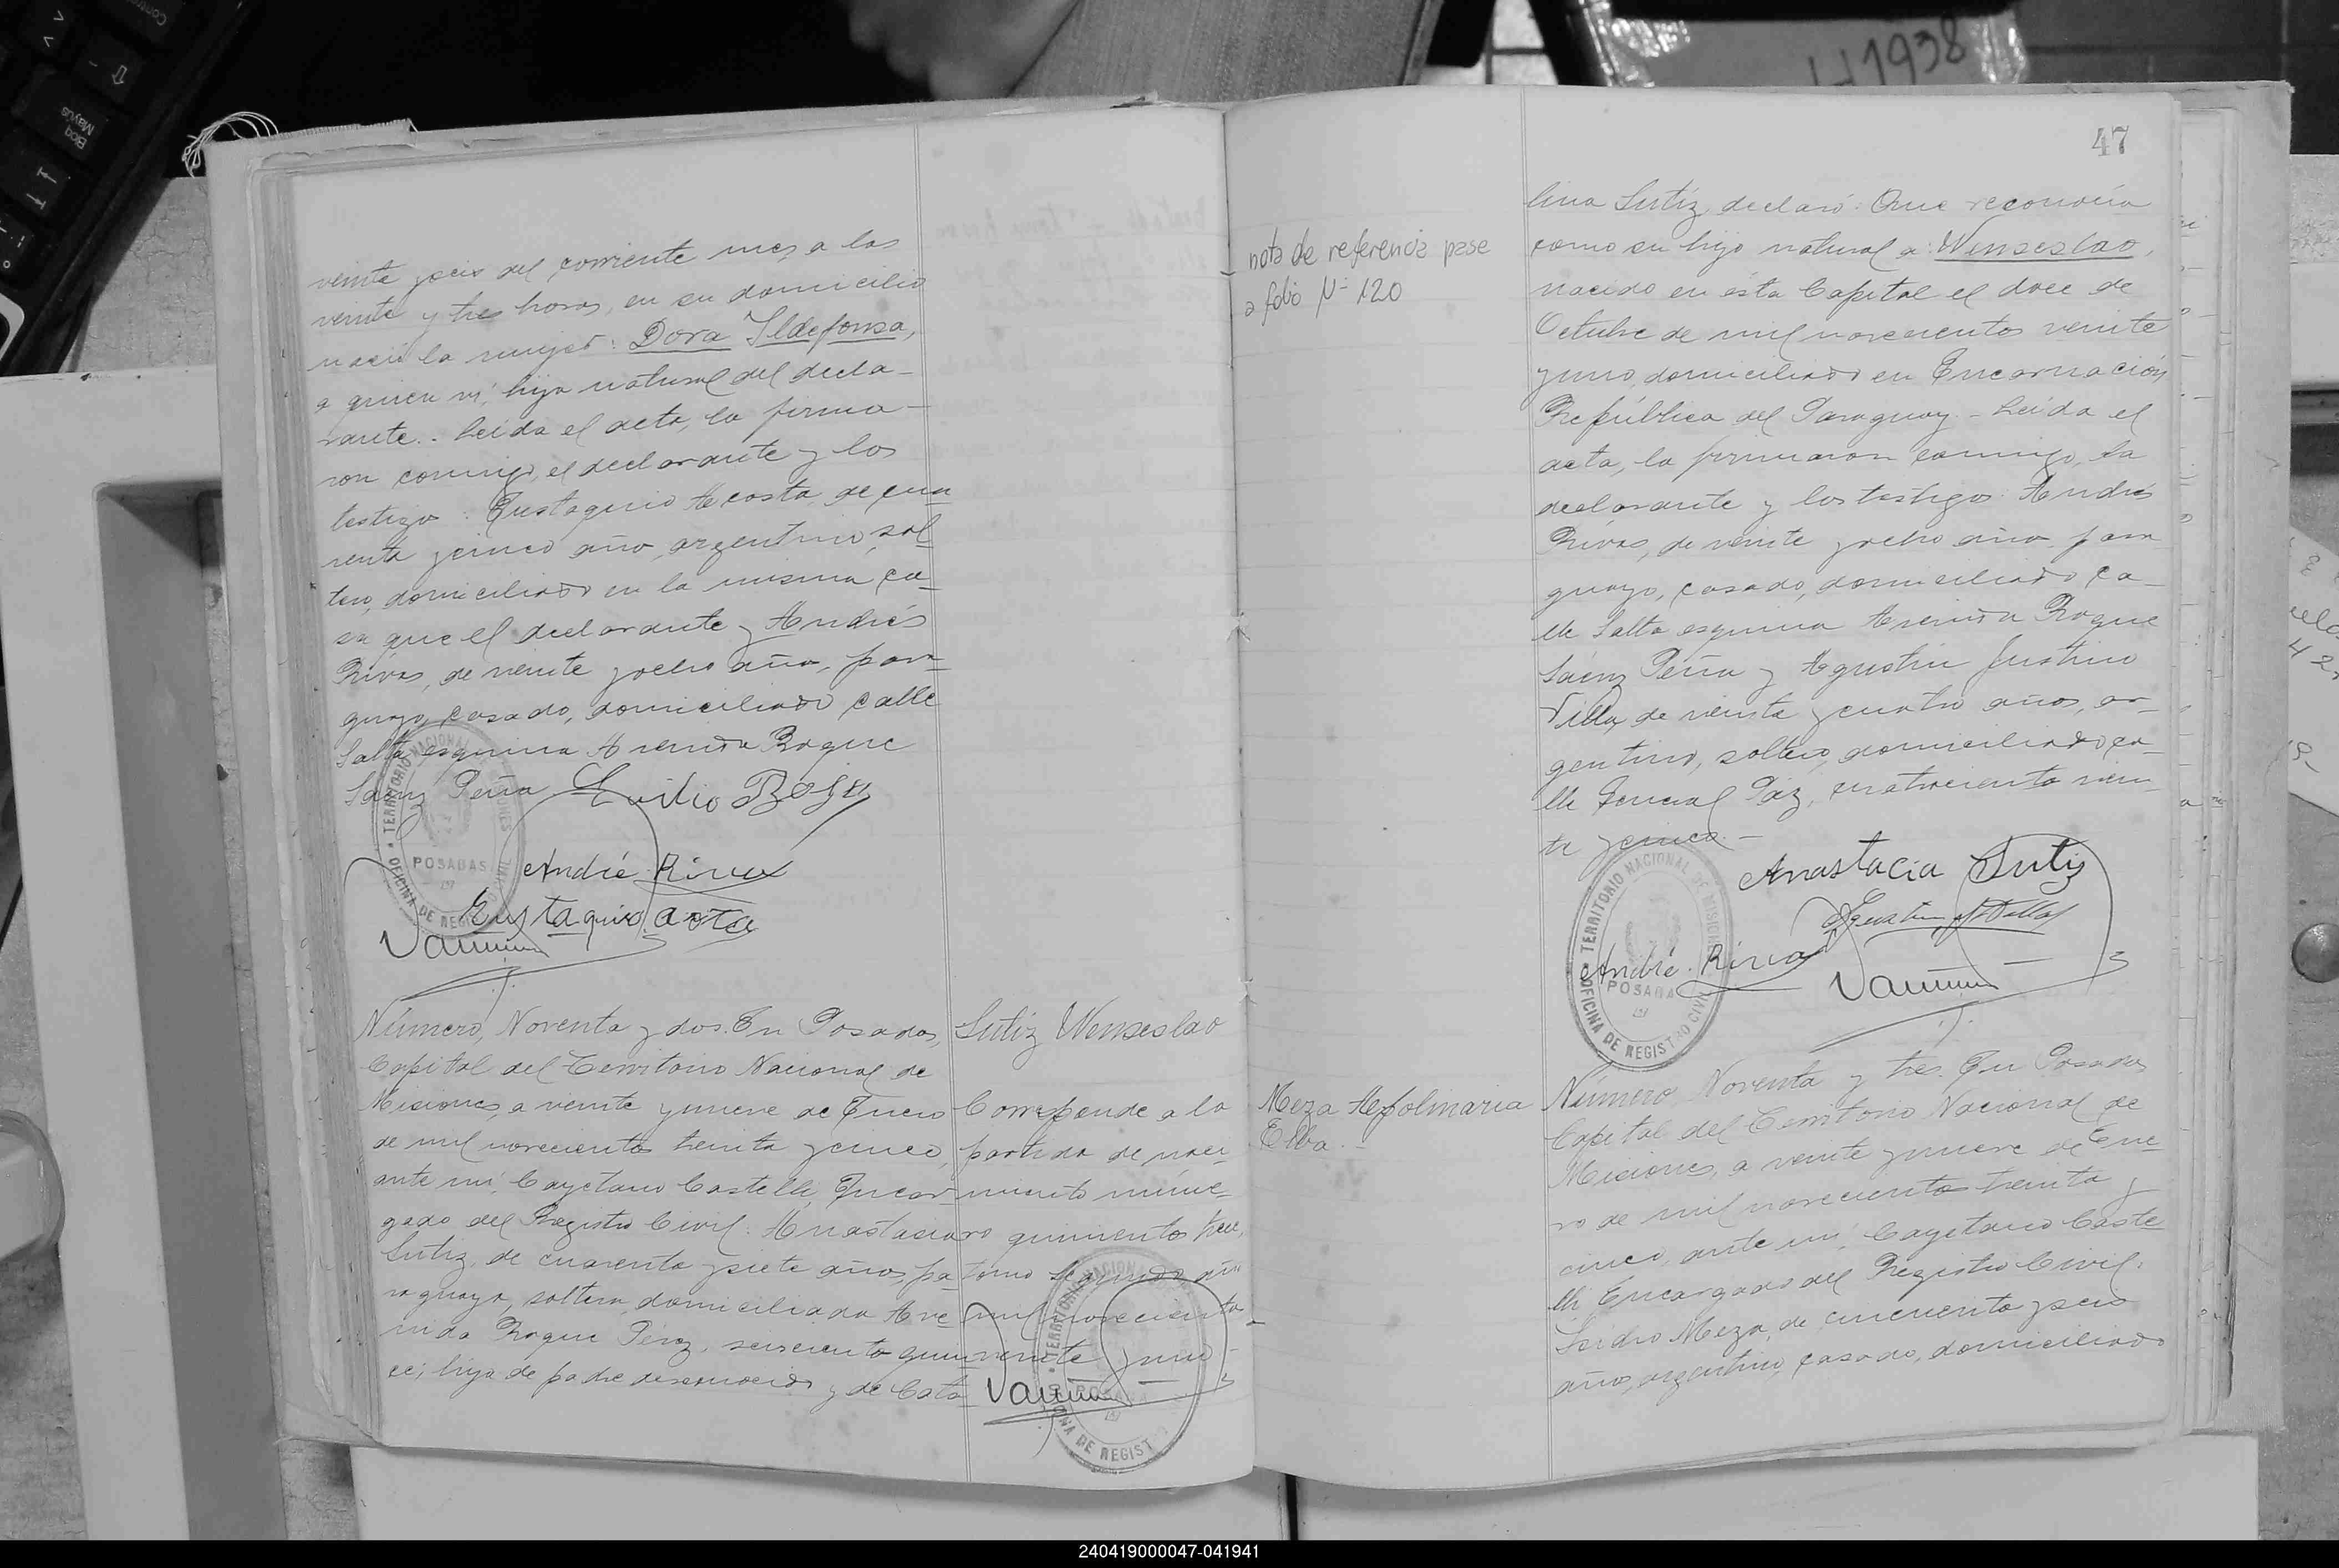 H1938
veinte y seis del corriente mes, a las
veinte y tres horas, en su domicilio
nació la mujer: Dora Ildefonsa,
a quien ví, hija natural del decla-
rante.- Leída el acta, la firma-
ron conmigo, el declarante y los
testigos: Eustaquio Acosta, de cua
renta y cinco años, argentino, sol-
tero, domiciliado en la misma ca-
sa que el declarante y Andrés
Rivas, de veinte y ocho años, para-
guayo, casado, domiciliado calle
Salta esquina Avenida Roque
Saenz Peña
André Rivas
Eustaquio
TERRITORIO NACIONAL DE MISIONES
POSADAS
OFICINA DE REGISTRO CIVIL
Número, Noventa y dos. En Posadas,
Capital del Territorio Nacional de
Misiones, a veinte y nueve de Enero
de mil novecientos treinta y cinco,
ante mí, Cayetano Castelli, Encar
gado del Registro Civil: Anastacia
Sutiz, de cuarenta y siete años, pa
raguaya, soltera, domiciliada Ave
nida Roque Pérez, seiscientos quin
ce; hija de padre desconocido y de Cata
Sutiz Wenseslao
Corresponde a la
partida de naci-
miento núme-
ro quinientos tres,
tomo segundo año
mil novecientos
veinte y uno
TERRITORIO NACIONAL
POSADAS
OFICINA DE REGISTRO
47
nota de referencia pase
a folio N° 120
lina Sutiz, declaró: Que reconocía
como su hijo natural a: Wenseslao,
nacido en ésta Capital el doce de
Octubre de mil novecientos veinte
y uno, domiciliado en Encarnación
República del Paraguay.- Leída el
acta, la firmaron conmigo, la
declarante y los testigos: Andrés
Rivas, de veinte y ocho años, para
guayo, casado, domiciliado ca-
lle Salta esquina Avenida Roque
Sáenz Peña y Agustin Justino
Villa, de veinte y cuatro años, ar-
gentino, soltero, domiciliado ca-
lle General Paz, cuatrocientos vein-
te y cinco.-
Anastacia Sutiz
André Rivas
TERRITORIO NACIONAL DE MISIONES
POSADAS
OFICINA DE REGISTRO CIVIL
Meza Apolinaria
Elba.-
Número, Noventa y tres. En Posadas,
Capital del Territorio Nacional de
Misiones, a veinte y nueve de Ene-
ro de mil novecientos treinta y
cinco, ante mí, Cayetano Caste-
lli Encargado del Registro Civil:
Isidro Meza, de cincuenta y seis
años, argentino, casado, domiciliado
240419000047-041941